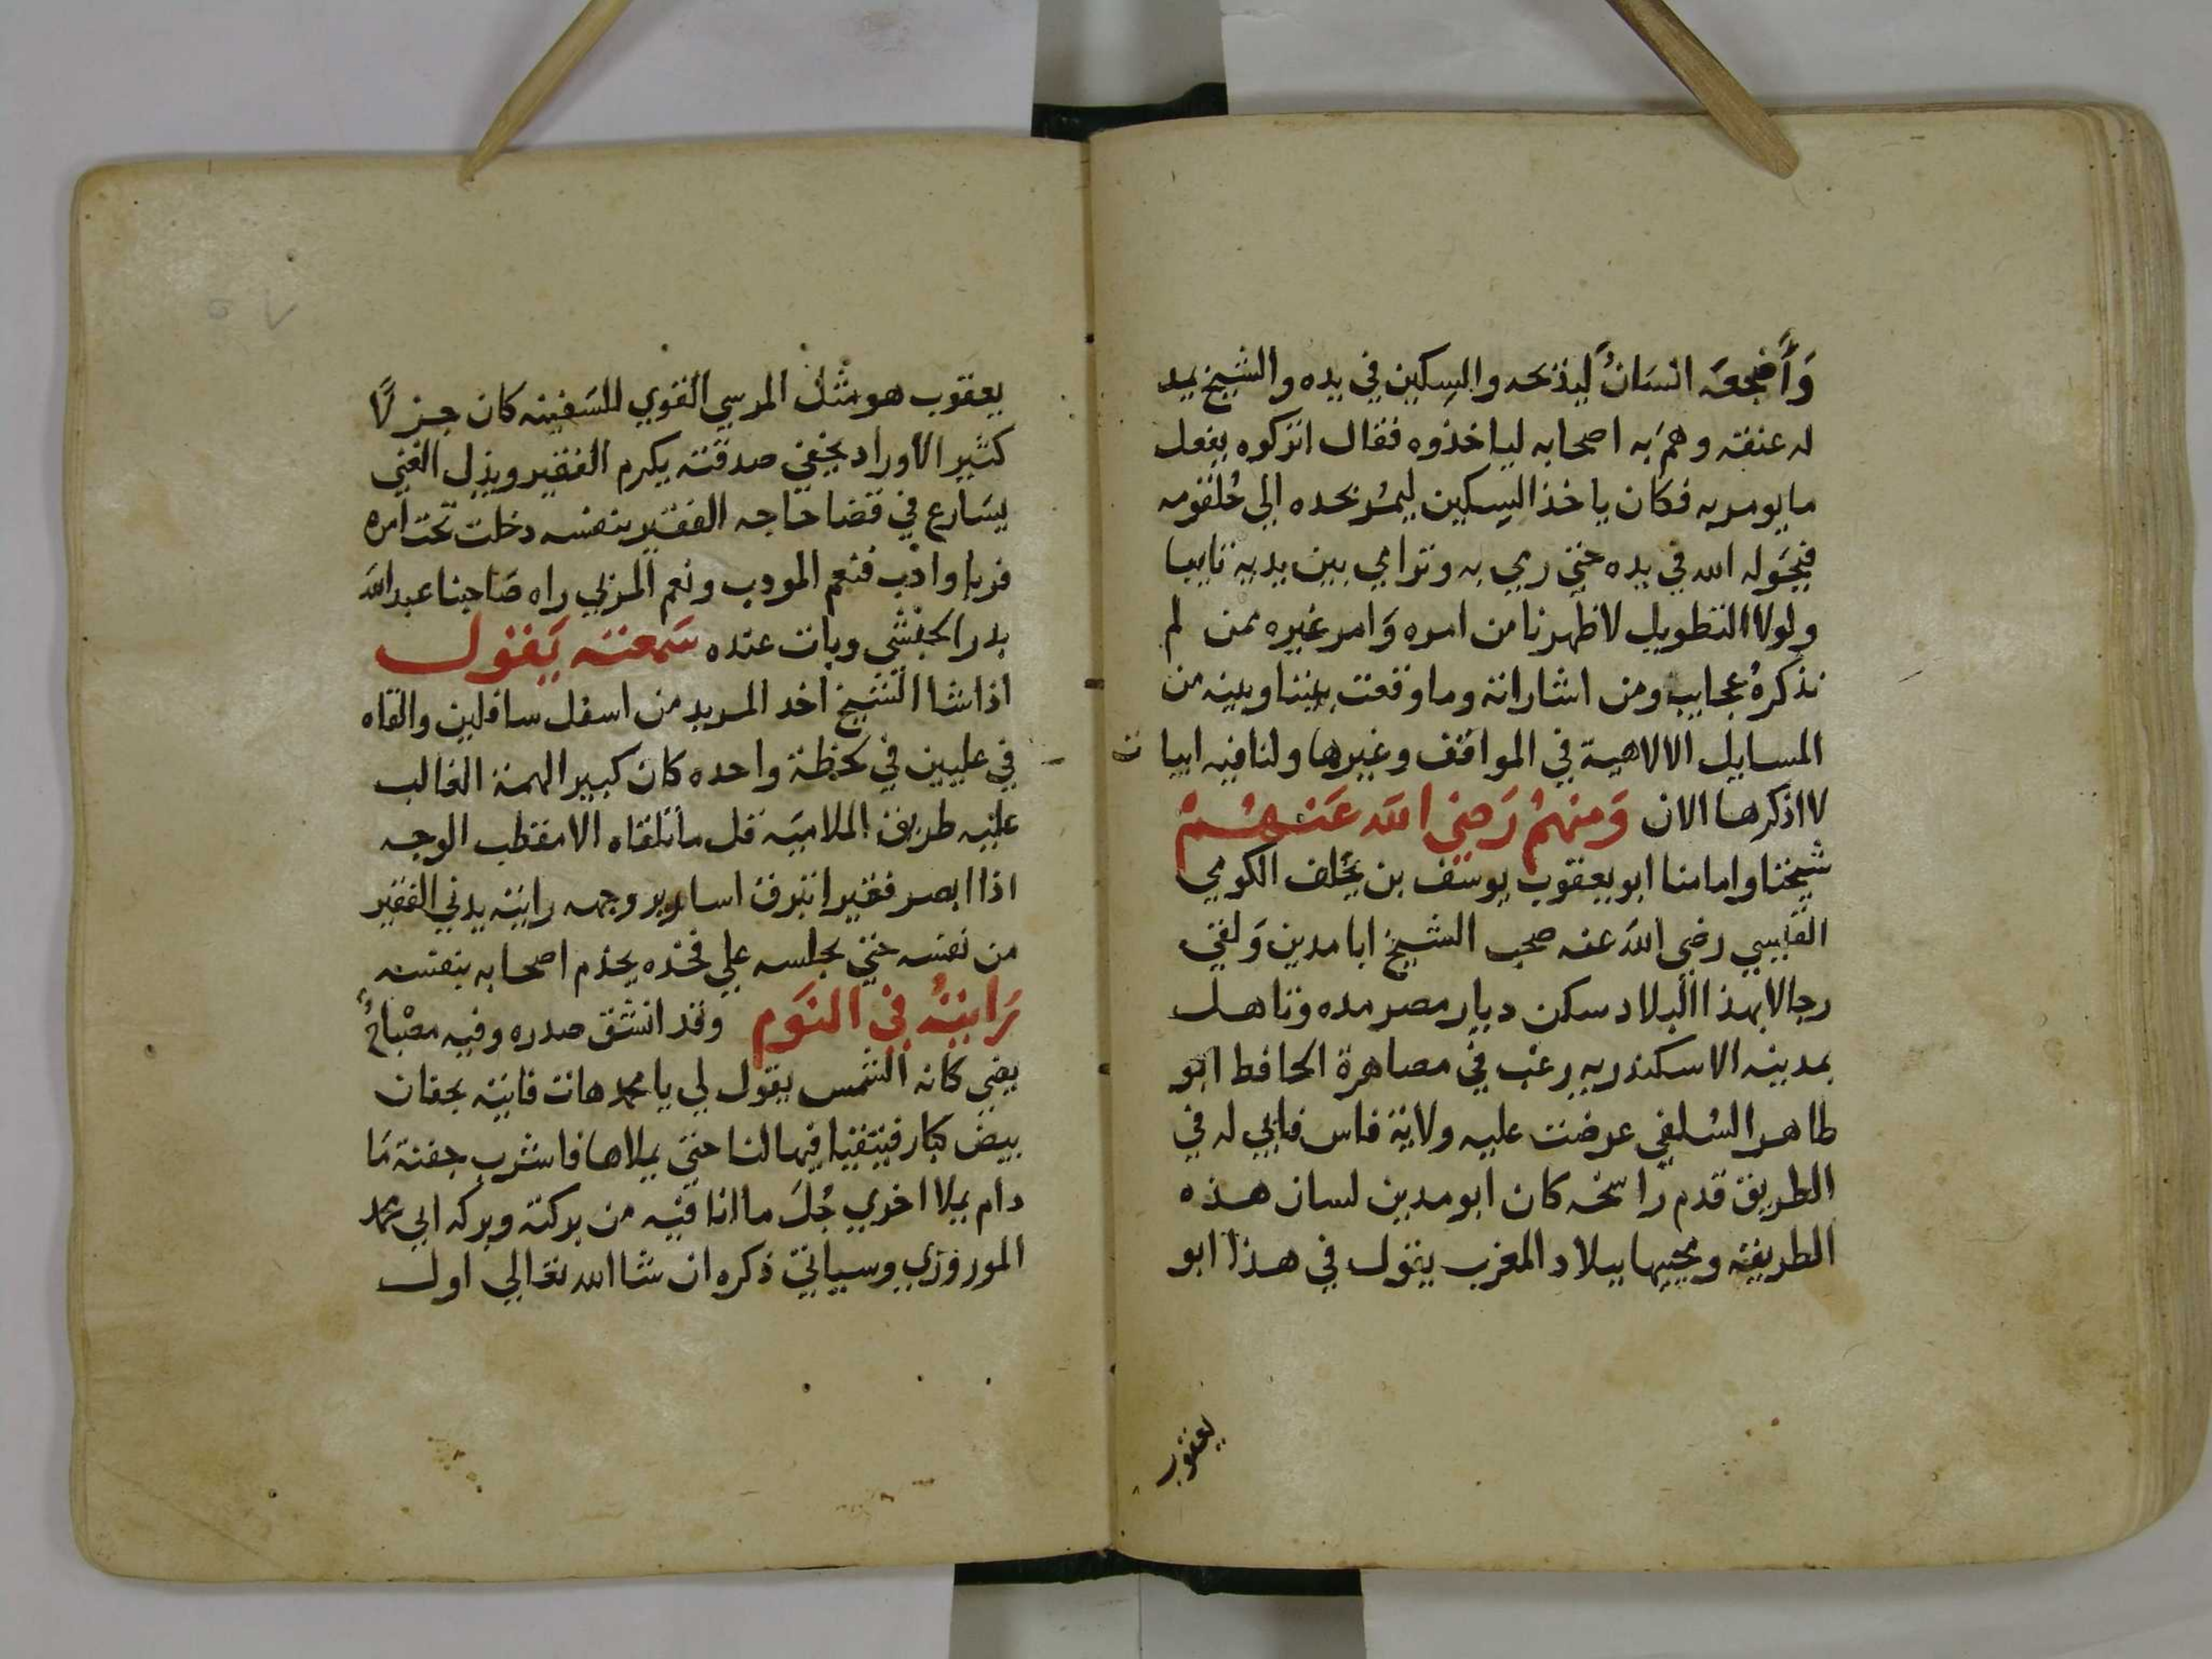 وَأَضجعَه انسَانٌ ليذبحه والسكين في يده والشيخ يمد
له عنقه وهمَ به اصحابه لياخذوه فقال اتركوه يفعل
ما يومر به فكان ياخذ السكين ليمُر بحده الي حُلقومه
فيحَوله الله في يده حتي رمي به وترامي بين يديه تايبا
ولولا التطويل لاظهرنا من امره وَامر غيره ممن لم
نذكرهُ عجايب ومن اشاراته وما وقعت بيننا وبينه من
المسايل الالاهية في المواقف وغيرها ولنا فيه ابيات
لا اذكرها الان وَمنهمُ رَضي الله عَنهُمْ
شيخنا وامامنا ابو يعقوب يوسَف بن يخلف الكومي
القبيسي رضي الله عنه صحب الشيخ ابا مدين وَلقي
رجالا بهذا البلاد سكن ديار مصر مده وتاهل
بمدينه الاسكندريه رغب في مصاهرة الحافظ ابو
طاهر السُلفي عرضت عليه ولاية فاس فابي له في
الطريق قدم راسخه كان ابو مدين لسان هذه
الطريقه ومحييها ببلاد المغرب يقول في هذا ابو
يعقوب
يعقوب هو مثل المرسي القوي للسَفينه كان جزلًا
كثير الاوراد يخفي صدقته يكرم الفقير ويذل الغني
يسَارع في قضا حاجه الفقير بنفسه دخلت تحت امره
فربا وادب فنعم المودب ونعم المزلي راه صَاحبنا عبد الله
بدر الحبشي وبات عنده سَمعته يَقول
اذا شا الشيخ اخد المريد من اسفل سافلين والقاه
في عليين في لحظة واحده كان كبير الهمة الغالب
عليه طريق الملاميَه قل ما تلقاه الا مقطب الوجه
اذا ابصر فقيرا تبرق اسارير وجهه رايته يدني الفقير
من نفسه حتي يجلسه علي فخذه يخدم اصحابه بنفسه
رَايتهُ في النَوم وقد انشق صدره وفيه مصْباحٌ
يضي كانه الشمس يقول لي يا محمد هات فاتيته بجفان
بيض كبار فيتقيا فيها لبنا حتي يملاها فاشرب جفنة مَا
دام يملا اخري جُل ما انا فيه من بركته وبركه ابي محمد
الموروزي وسياتي ذكره ان شا الله تعالي اول